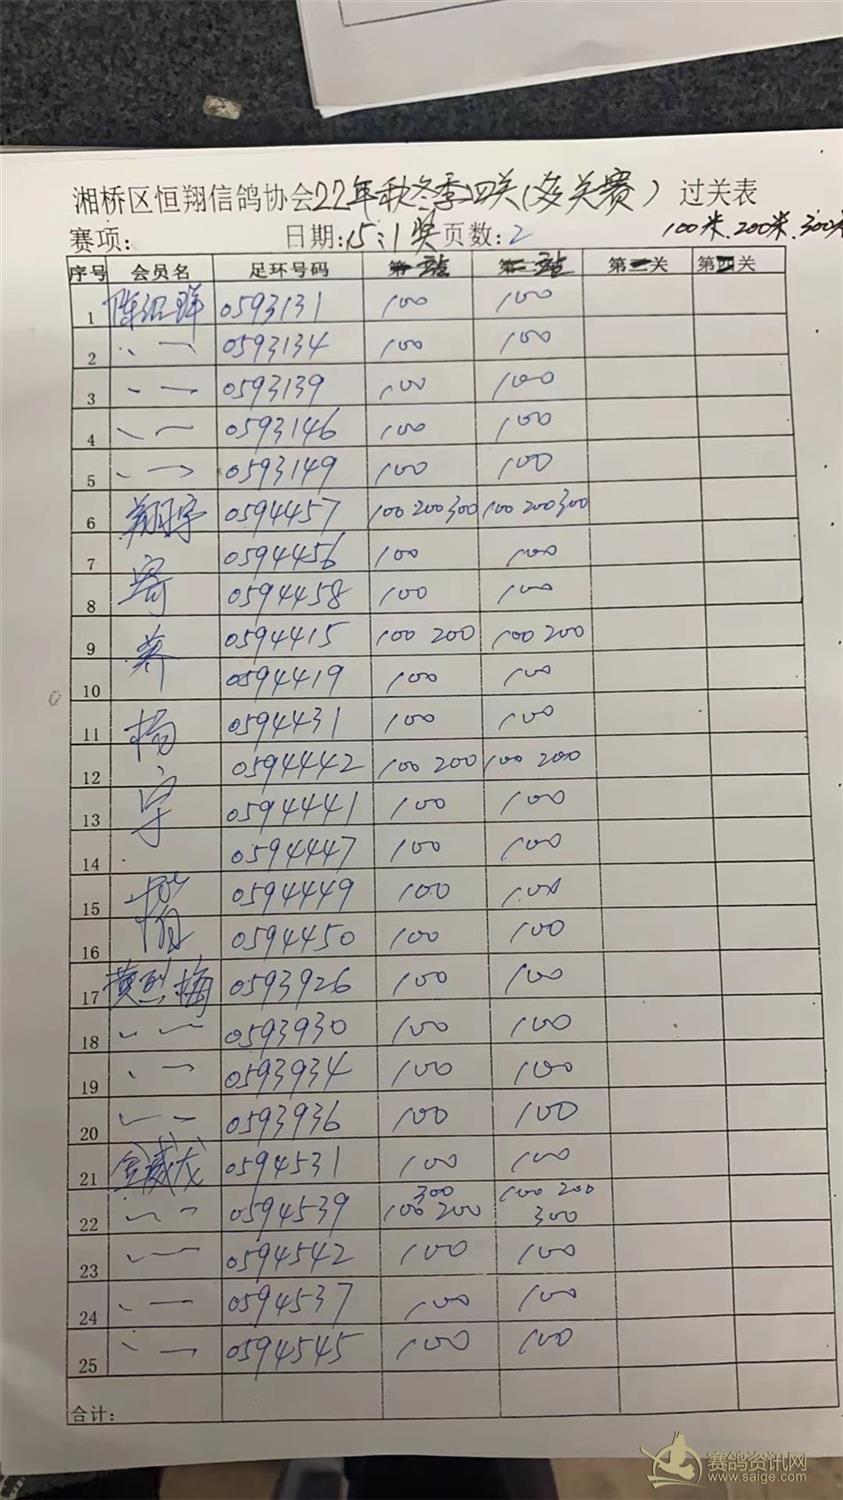 湘桥区恒翔信鸽协会22年秋冬季四关(多关赛)过关表
赛项: 日期:15:1奖 页数:2 100米.200米.300米
序号 会员名 足环号码 第一站 第二站 第三关 第四关
1 陈绍群 0593131 100 100
2 、一 0593134 100 100
3 、一 0593139 100 100
4 、一 0593146 100 100
5 、一 0593149 100 100
6 翔宇 0594457 100 200 300 100 200 300
7 0594456 100 100
8 寄 0594458 100 100
9 养 0594415 100 200 100 200
10 0594419 100 100
11 杨 0594431 100 100
12 0594442 100 200 100 200
13 宇 0594441 100 100
14 0594447 100 100
15 0594449 100 100
16 0594450 100 100
17 黄烈梅 0593926 100 100
18 、一 0593930 100 100
19 、一 0593934 100 100
20 、一 0593936 100 100
21 金威龙 0594531 100 100
22 、一 0594539 100 200 300 100 200 300
23 、一 0594542 100 100
24 、一 0594537 100 100
25 、一 0594545 100 100
合计:
赛鸽资讯网
www.saige.com